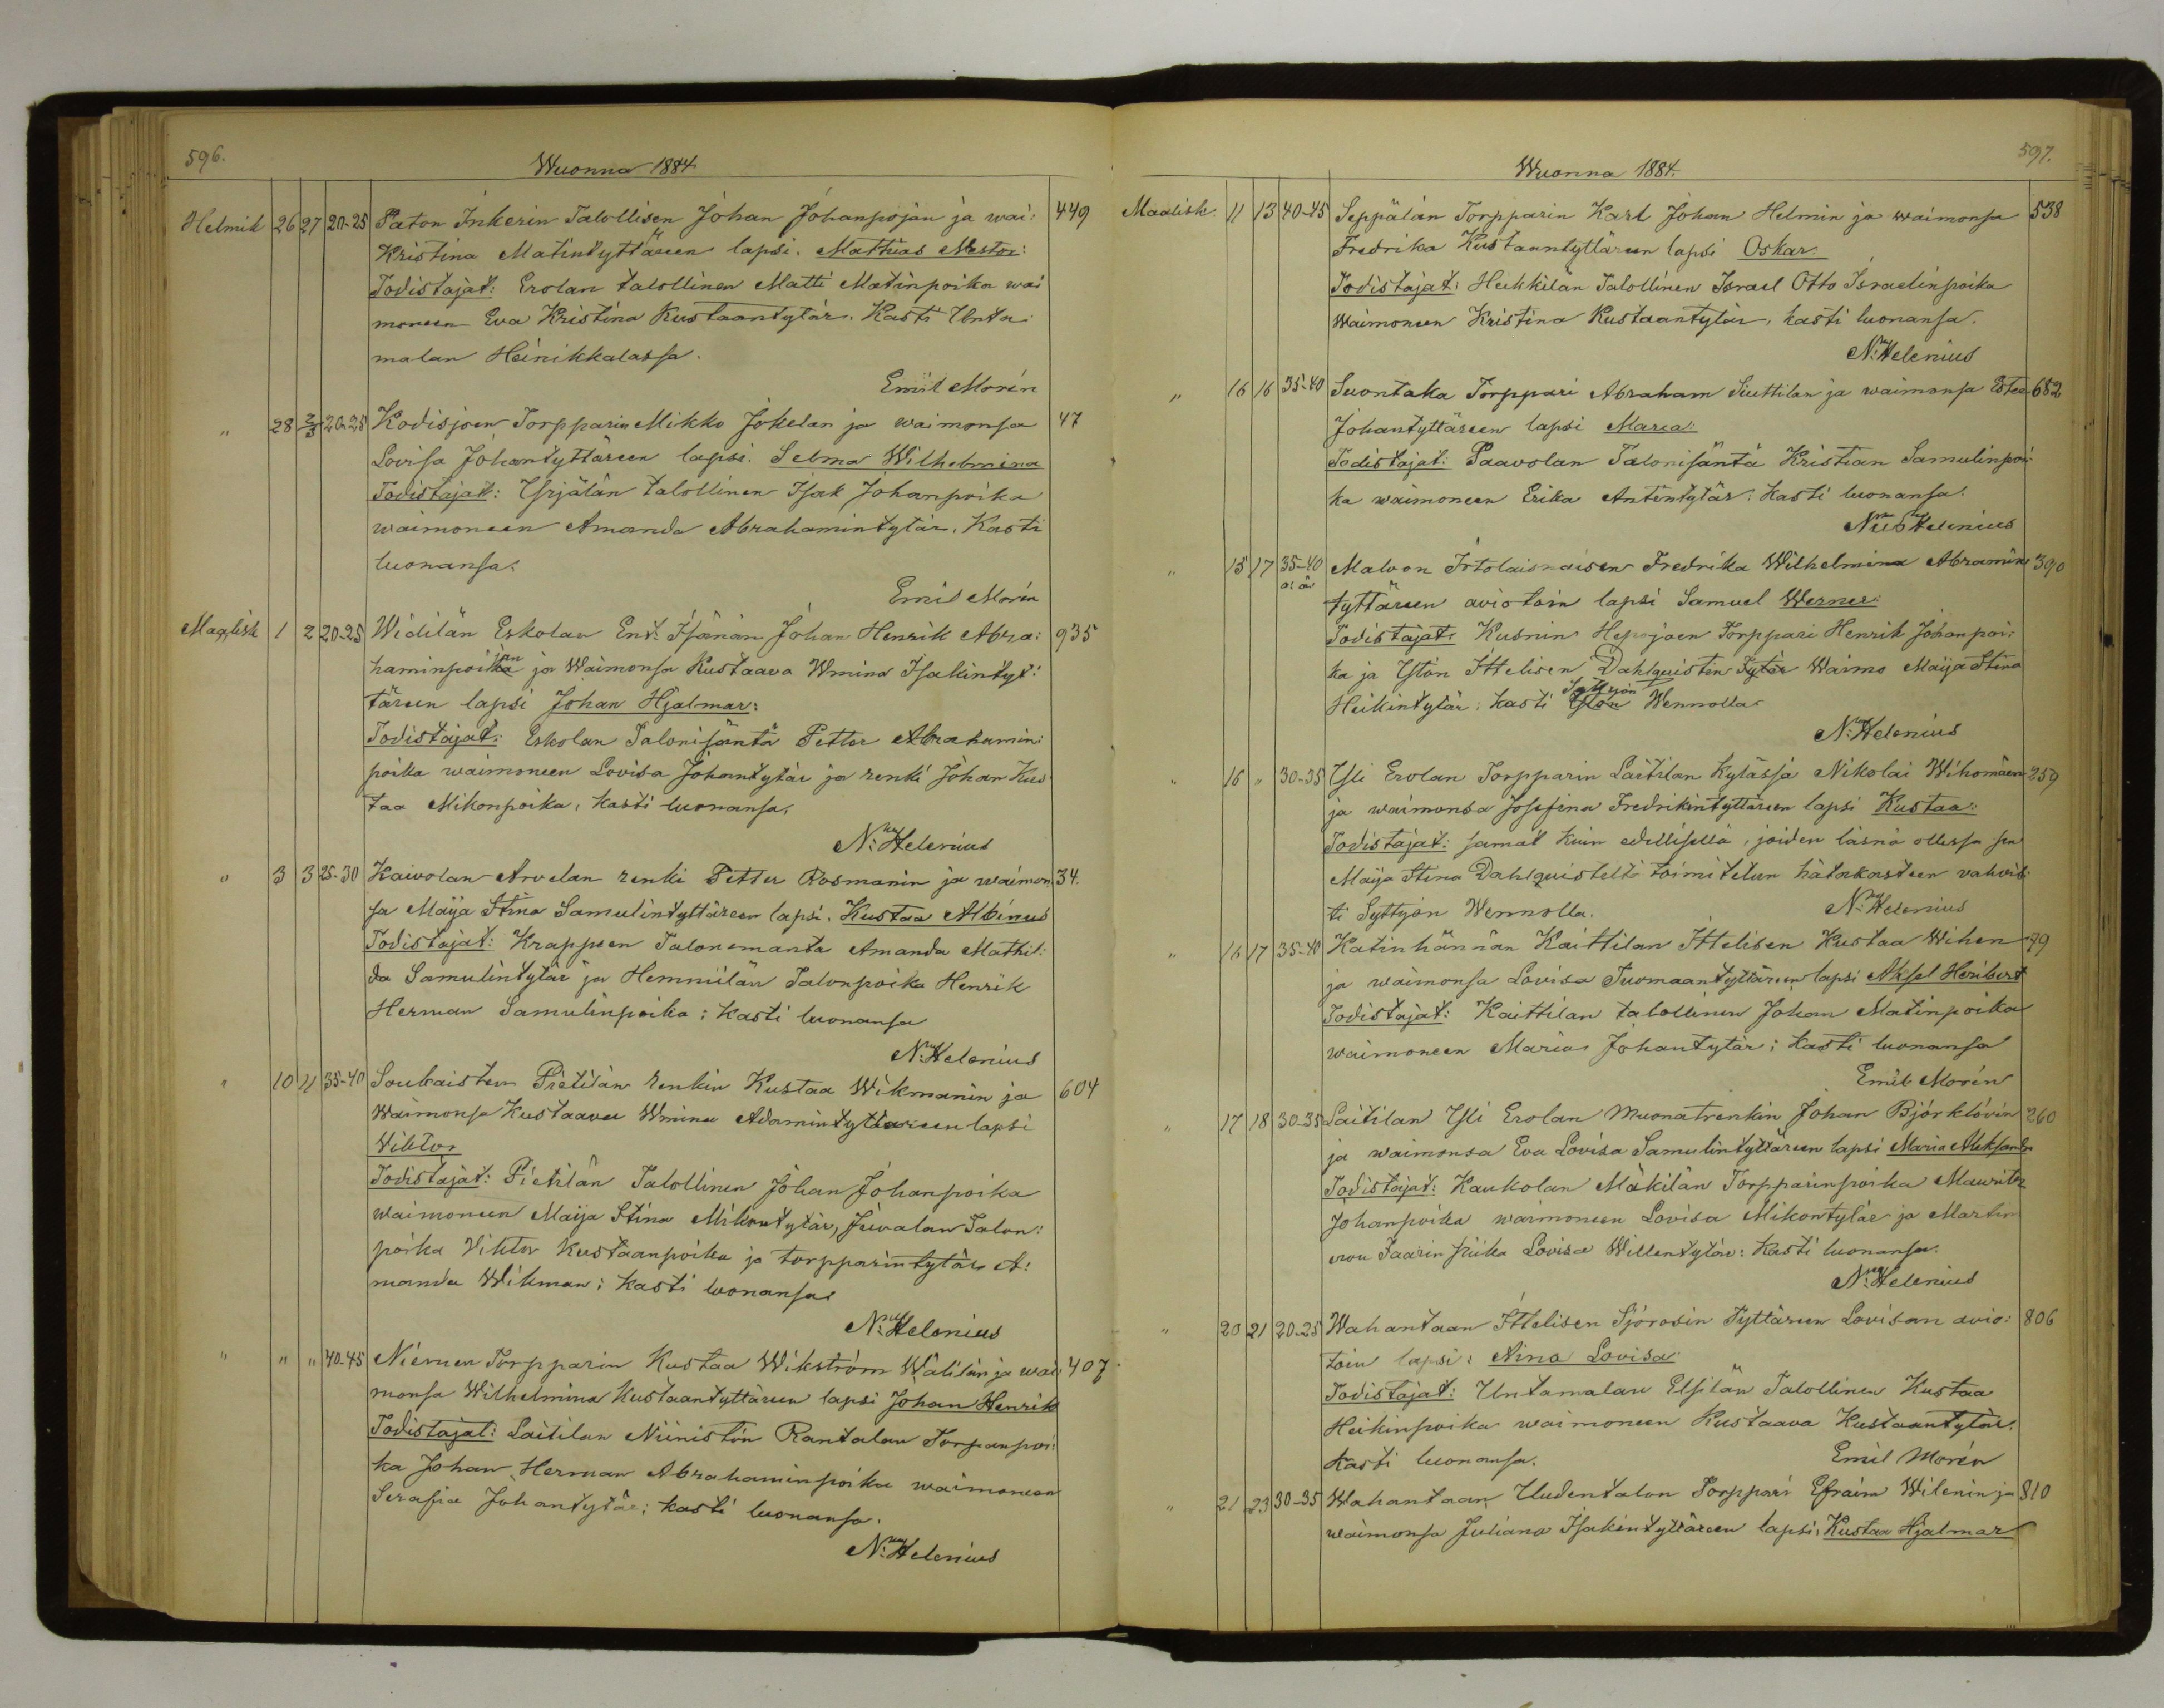 596.
Wuonna 1884.
Helmik 26 27 20-25 Paton Inkerin Talollisen Johan Johanpojan ja wai: 449
Kristina Matintyttäreen lapsi. Mathias Nestor:
Todistajat: Erolan talollinen Matti Matinpoika wai
moneen Eva Kristina Kustaantytär. Kasti Unta:
malan Heinikkalassa.
Emil Morén
" 28 2/3 20-25 Kodisjoen Torpparin Mikko Jokelan ja waimonsa 47
Lovisa Johantyttäreen lapsi. Selma Wilhelmina
Todistajat: Yrjälän talollinen Isak Johanpoika
waimoneen Amanda Abrahamintytär. Kasti
luonansa.
Emil Morén
Maalisk 1 2 20-25 Widilän Eskolan Ent. Isänän Johan Henrik Abra: 935
haminpoikajan ja Waimonsa Kustaava Wmina Isakintyt:
täreen lapsi Johan Hjalmar:
Todistajat: Eskolan Talonisäntä Petter Abrahamin:
poika waimoneen Lovisa Johantytär ja renki Johan Kus
taa Mikonpoika, kasti luonansa.
N. Helenius
" 3 3 25-30 Kaivolan Arvelan renki Petter Rosmanin ja waimon 34.
sa Maija Stina Samulintyttäreen lapsi. Kustaa Albinus
Todistajat: Krappeen Talonemäntä Amanda Mathil:
da Samulintytär ja Hemmilän Talonpoika Henrik
Herman Samulinpoika; kasti luonansa
N. Helenius
" 10 11 35-40 Soukaisten Pietilän renkin Kustaa Wikmanin ja 604
Waimonsa Kustaava Wmina Adamintyttäreen lapsi
Viktor
Todistajat: Pietilän Talollinen Johan Johanpoika
waimoneen Maija Stina Mikontytär, Juvalan Talon:
poika Viktor Kustaanpoika ja torpparintytär A:
manda Wikman; kasti luonansa
N. Helenius
" " " 40-45 Niemen Torpparin Kustaa Wikström Wälilän ja wai: 407
monsa Wilhelmina Kustaantyttäreen lapsi Johan Henrik
Todistajat: Laitilan Niinistön Rantalan Torpanpoi:
ka Johan Herman Abrahaminpoika waimoneen
Serafia Johantytär; kasti luonansa.
N. Helenius
597.
Wuonna 1884.
Maalisk. 11 13 40-45 Seppälän Torpparin Karl Johan Helmin ja waimonsa 538
Fredrika Kustaantyttäreen lapsi Oskar.
Todistajat: Heikkilän Talollinen Israel Otto Israelinpoika
Waimoneen Kristina Kustaantytär, kasti luonansa.
N. Helenius
" 16 16 35-40 Suontaka Torppari Abraham Siuttilan ja waimonsa 652
Johantyttäreen lapsi Maria:
Todistajat: Paavolan Talonisäntä Kristian Samulinpoi:
ka waimoneen Erika Antintytär. Kasti luonansa.
Helenius
" 15 17 35-40 Malvon Irtolaisnaisen Fredrika Wilhelmina Abramin 390
tyttäreen aviotoin lapsi Samuel Werner:
Todistajat: Kusnin Hepojoen Torppari Henrik Johanpoi:
ka ja Ytön Ittelisen Dahlquistin Tytär Waimo Maija Stina
Heikintytär: kasti Syttyön Ytön Wennolla.
N. Helenius
" 16 " 30-35 Yli Erolan Torpparin Laitilan Kylässä Nikolai Wihomäen 259
ja waimonsa Josefina Fredrikintyttäreen lapsi Kustaa:
Todistajat: samat kuin edellisellä, joiden läsnä ollessa sen
Maija Stina Dahlquistilta toimitetun hätäkasteen vahvis:
ti Syttyön Wennolla. N. Helenius
" 16 17 35-40 Katinhännän Kaittilan Ittelisen Kustaa Wihen 79
ja waimonsa Lovisa Tuomaantyttäreen lapsi Aksel Heribert
Todistajat: Kaittilan talollinen Johan Matinpoika
waimoneen Maria Johantytär; kasti luonansa
Emil Morén
" 17 18 30-35 Laitilan Yli Erolan Muonatrenkin Johan Björklövin 260
ja waimonsa Eva Lovisa Samulintyttäreen lapsi Maria Aleksandra
Todistajat: Kaukolan Mäkilän Torpparinpoika Mauritz
Johanpoika waimoneen Lovisa Mikontytär ja Martin
Saarin piika Lovisa Willentytär: Kasti luonansa.
N. Helenius
" 20 21 20-25 Wahantaan Ittelisen Sjörosin Tyttären Lovisan avio: 806
toin lapsi: Nina Lovisa
Todistajat: Untamalan Elsilän Talollinen Kustaa
Heikinpoika waimoneen Kustaava Kustaantytär.
Kasti luonansa. Emil Morén
" 21 23 30-35 Wahantaan Uudentalon Torppari Efraim Wilenin ja 810
waimonsa Juliana Isakintyttäreen lapsi, Kustaa Hjalmar